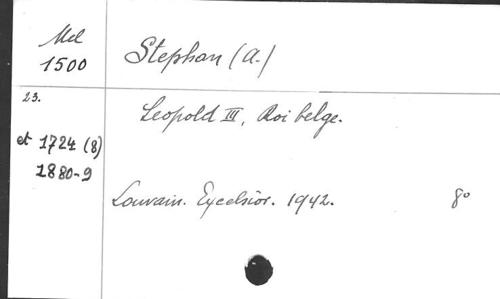 Mel
1500
Stephan (A.)
23.
et 1724 (8)
1880-9
Leopold III, Roi belge.
Louvain. Excelsior. 1942. 8°